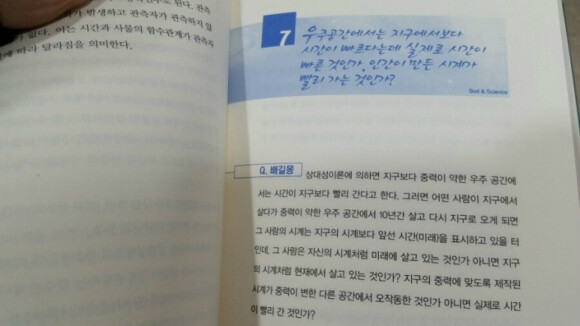 가 발생하고 관측자가 관측하지 않
없다. 이는 시간과 사물의 함수관계가 관측자
에 따라 달라짐을 의미한다.
7
우주공간에서는 지구에서보다
시간이 빠르다는데 실제로 시간이
빠른 것인가, 인간이 만든 시계가
빨리 가는 것인가?
God & Science
Q. 배길몽
상대성이론에 의하면 지구보다 중력이 약한 우주 공간에
서는 시간이 지구보다 빨리 간다고 한다. 그러면 어떤 사람이 지구에서
살다가 중력이 약한 우주 공간에서 10년간 살고 다시 지구로 오게 되면
그 사람의 시계는 지구의 시계보다 앞선 시간(미래)을 표시하고 있을 터
인데, 그 사람은 자신의 시계처럼 미래에 살고 있는 것인가 아니면 지구
의 시계처럼 현재에서 살고 있는 것인가? 지구의 중력에 맞도록 제작된
시계가 중력이 변한 다른 공간에서 오작동한 것인가 아니면 실제로 시간
이 빨리 간 것인가?